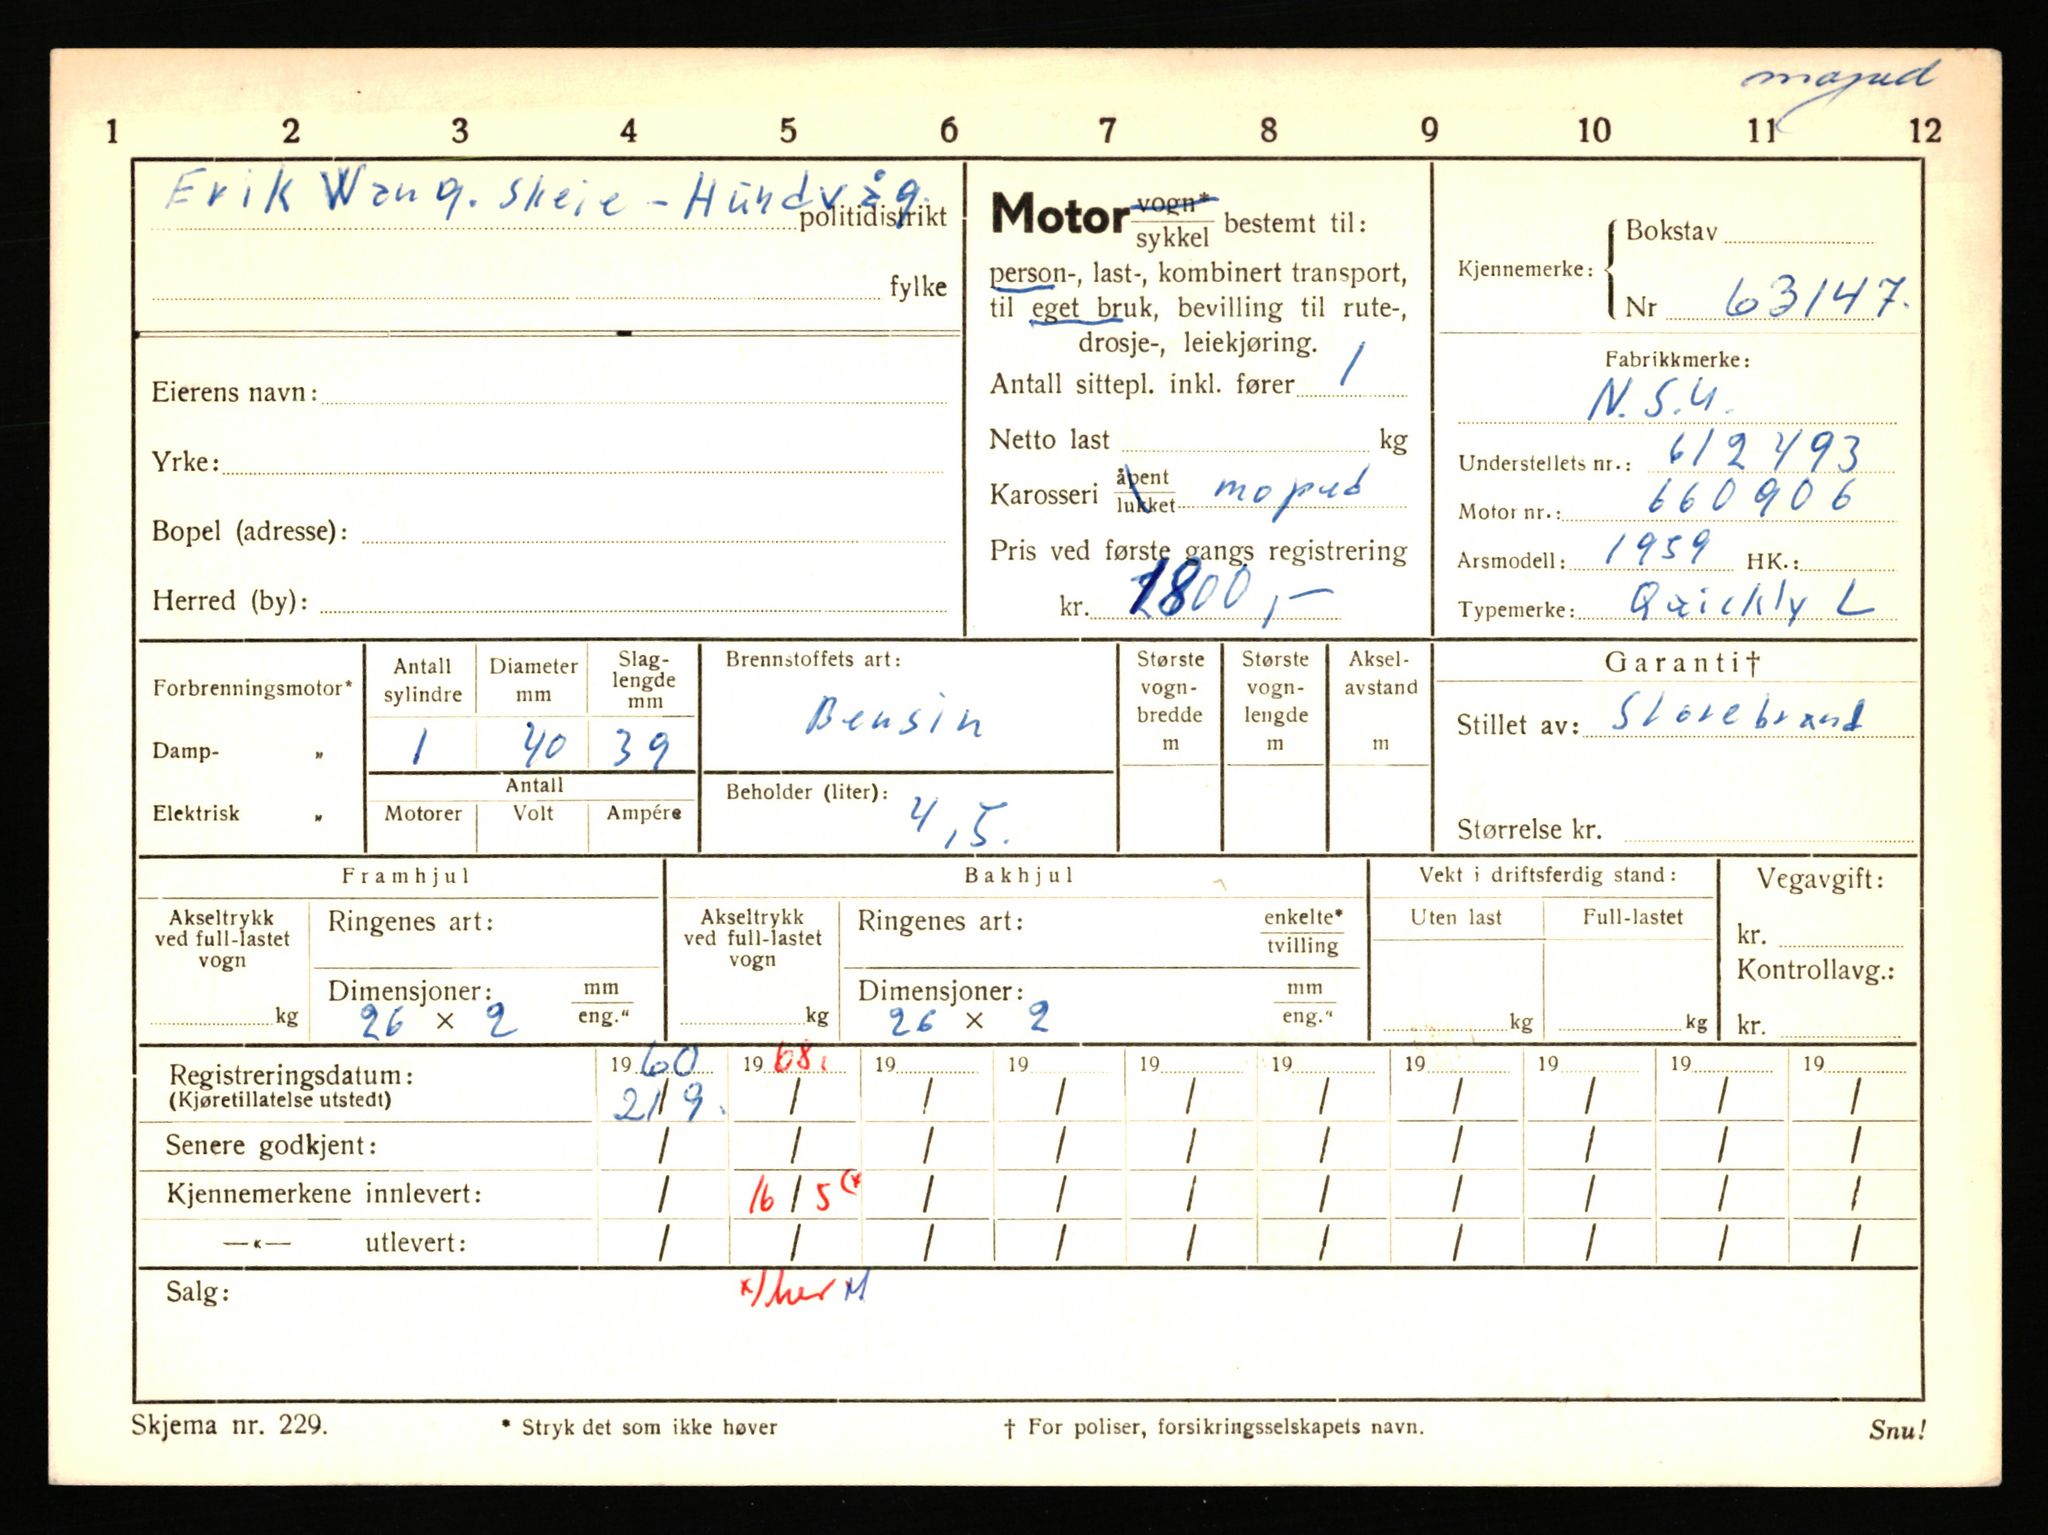 moped
1 2 3 4 5 6 7 8 9 10 11 12
Erik Wang. Skeie - Hundvåg.
politidistrikt
fylke
Eierens navn:
Yrke:
Bopel (adresse):
Herred (by):
Motor vogn* / sykkel bestemt til:
person-, last-, kombinert transport,
til eget bruk, bevilling til rute-,
drosje-, leiekjøring.
Antall sittepl. inkl. fører 1
Netto last kg
Karosseri åpent / lukket moped
Pris ved første gangs registrering
kr. 1800,-
Kjennemerke: Bokstav
Nr 63147.
Fabrikkmerke:
N.S.U.
Understellets nr.: 612493
Motor nr.: 660906
Arsmodell: 1959 HK.:
Typemerke: Quickly L
Forbrenningsmotor*
Damp- „
Elektrisk „
Antall sylindre
1
Diameter mm
40
Slag-
lengde
mm
39
Antall
Motorer Volt Ampére
Brennstoffets art:
Bensin
Beholder (liter):
4,5.
Største
vogn-
bredde
m
Største
vogn-
lengde
m
Aksel-
avstand
m
Garanti†
Stillet av: Storebrand
Størrelse kr.
Framhjul
Akseltrykk
ved full-lastet
vogn
kg
Ringenes art:
Dimensjoner: mm / eng."
26 × 2
Bakhjul
Akseltrykk
ved full-lastet
vogn
kg
Ringenes art: enkelte* / tvilling
Dimensjoner: mm / eng."
26 × 2
Vekt i driftsferdig stand:
Uten last Full-lastet
kg kg
Vegavgift:
kr.
Kontrollavg.:
kr.
19 60 19 68. 19 19 19 19 19 19 19 19
Registreringsdatum:
(Kjøretillatelse utstedt)
21/9. / / / / / / / / /
Senere godkjent: / / / / / / / / / /
Kjennemerkene innlevert: / 16/5 (* / / / / / / / /
—«— utlevert: / / / / / / / / / /
Salg: *) her
Skjema nr. 229. * Stryk det som ikke høver † For poliser, forsikringsselskapets navn. Snu!